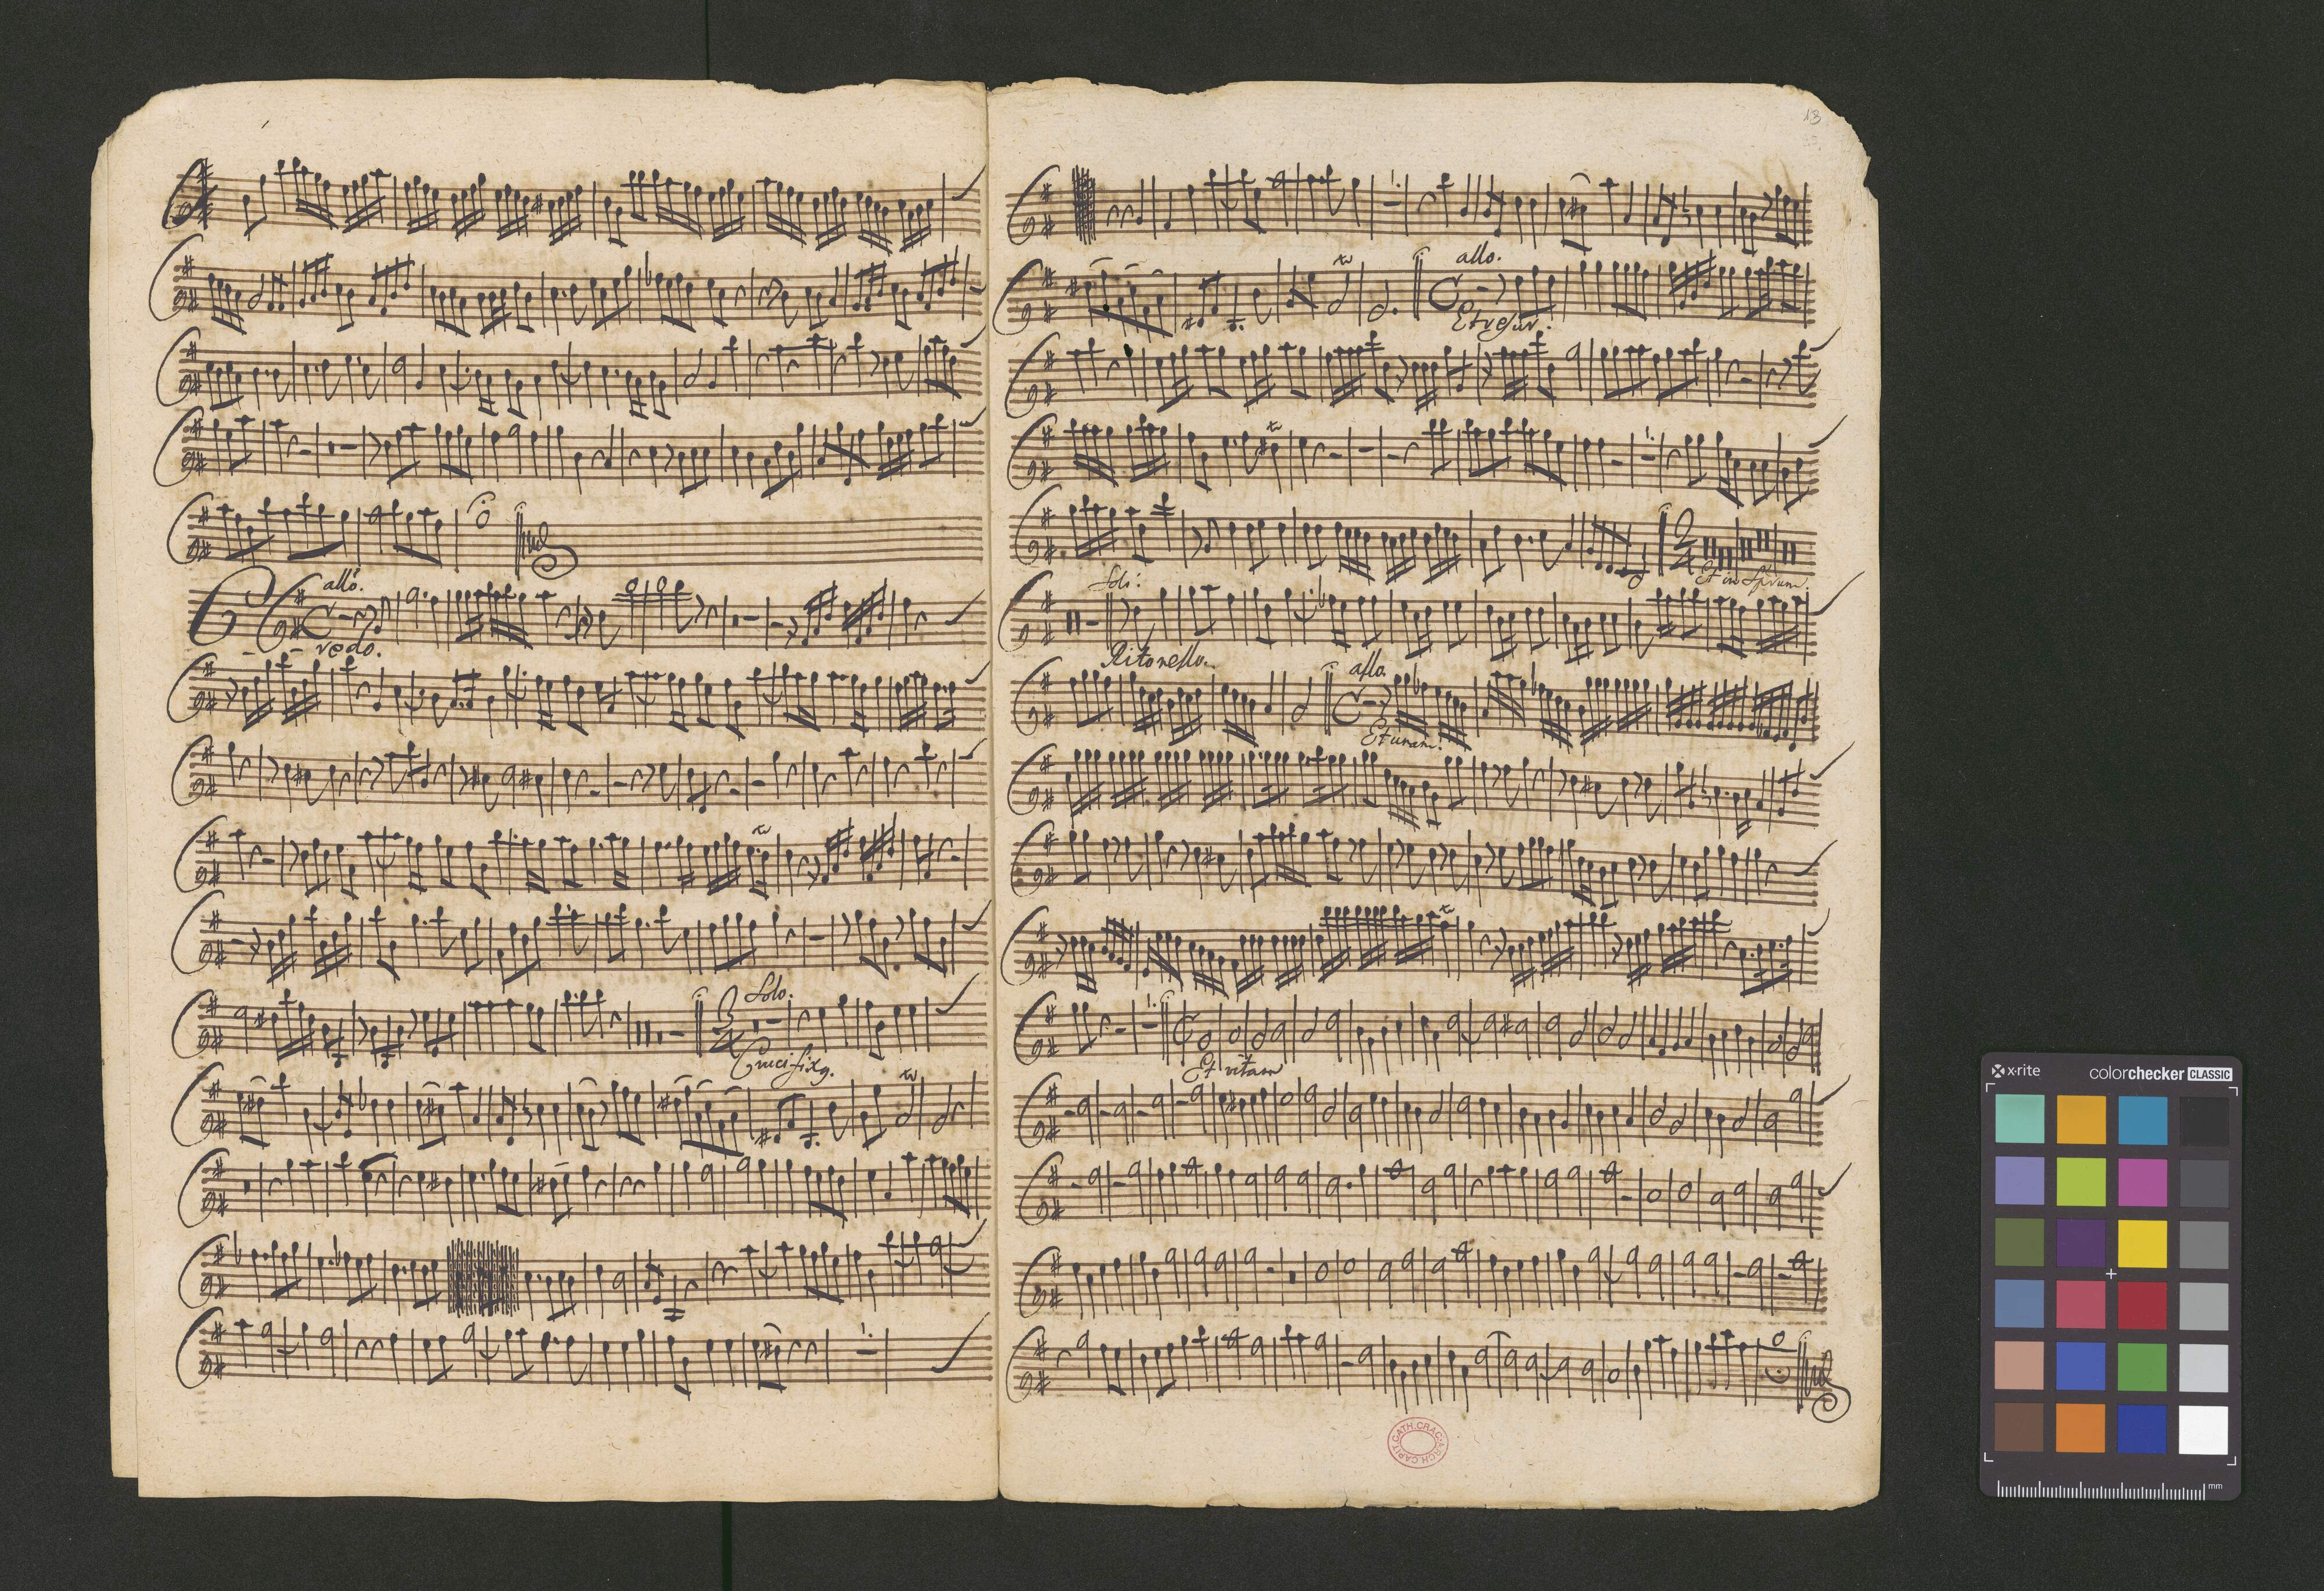 allo.
Credo.
Solo.
3/4
Crucifixg.
13
allo.
Et resur.
2/4
Et in Spirum.
Soli.
Ritonello.
allo.
Et unam.
Et vitam
ARCH. CAPIT. CATH. CRAC.
x-rite
colorchecker CLASSIC
mm